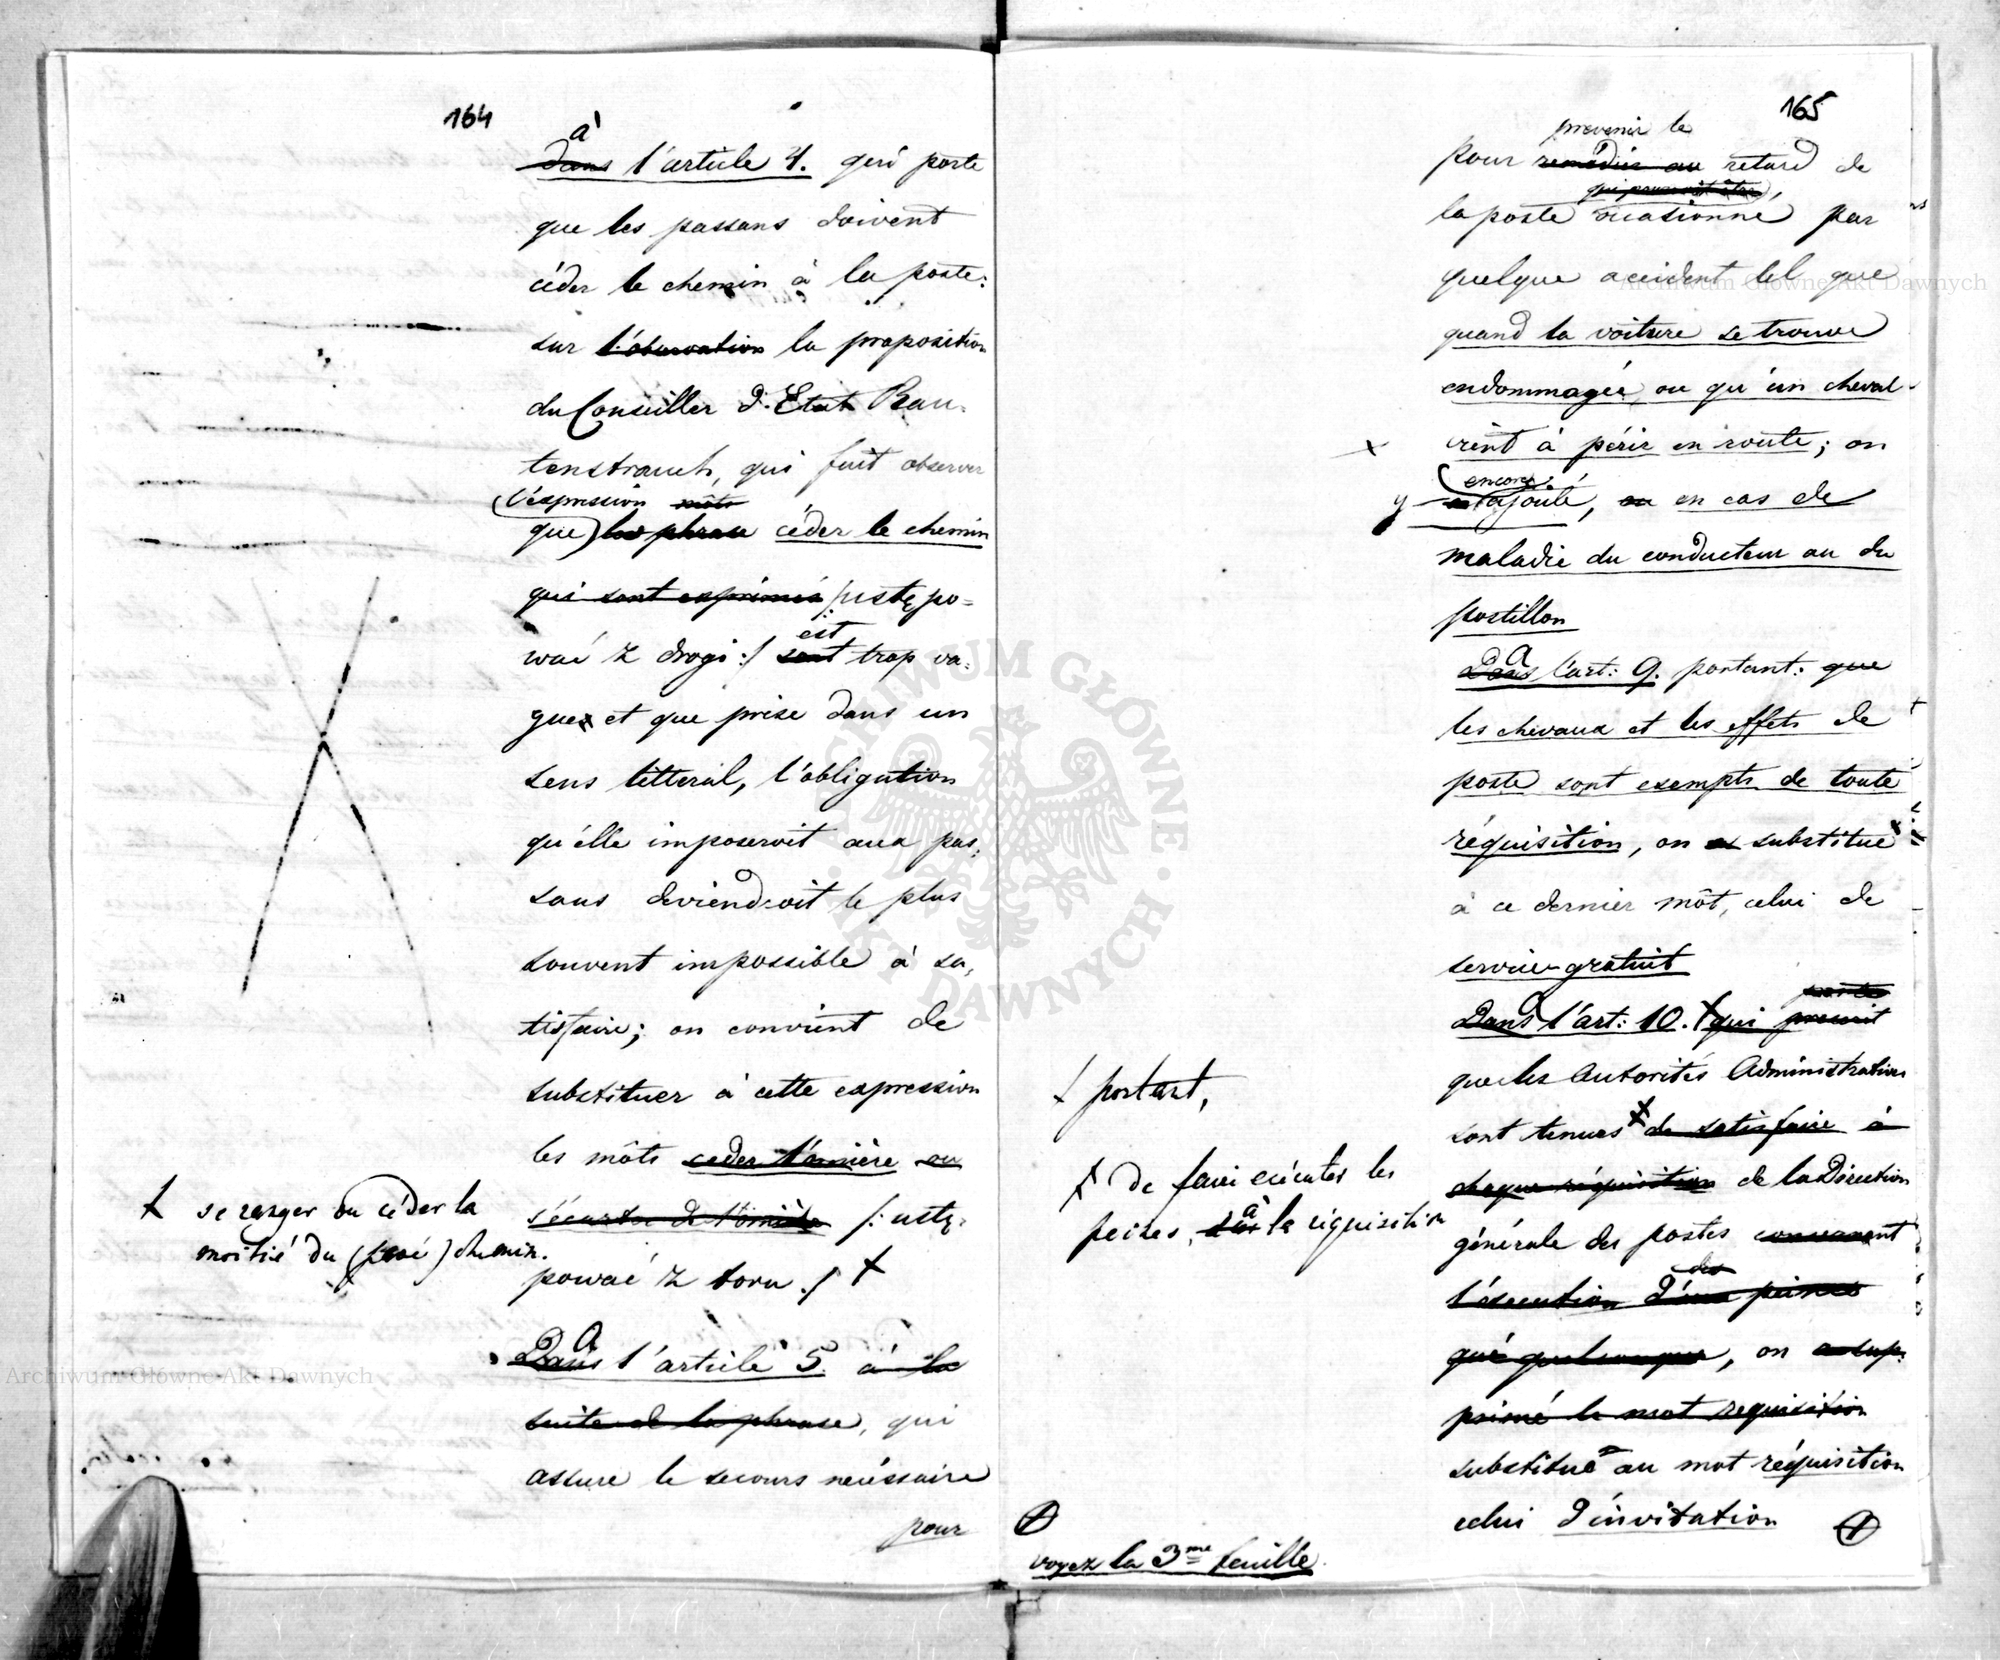 164
à
dans l'article 4. qui porte
que les passans doivent
céder le chemin à la poste:
sur l'observation la proposition
du Conseiller d'Etat Rau-
tenstrauch, qui fait observer
l'expression môts
que les phrase céder le chemin
qui sont exprimés /:ustępo=
wać z drogi:/ sont est trop va-
gue et que prise dans un
sens litteral, l'obligation
qu'elle imposeroit aux pas-
sans deviendroit le plus
souvent impossible à sa-
tisfaire; on convient de
substituer à cette expression
les môts ceder l'ornière ou
s'écarter de l'ornière /: ustę-
pować z toru :/ +
+ se ranger ou céder la
moitié du (pavé) chemin.
A
Dans l'article 5. à la
suite de la phrase, qui
assure le secours nécéssaire
pour
165
prevenir le
pour remédier au retard de
qui pourroit être
la poste occasionné par
quelque accident tel que
quand la voiture se trouve
endommagée, ou qu'un cheval
vient à périr en route; on
encore
a ajouté, ou en cas de
maladie du conducteur ou du
postillon
A
Dans l'art: 9. portant: que
les chevaux et les effets de
poste sont exempts de toute
réquisition, on a substitué
à ce dernier môt, celui de
service-gratuit
porte
Dans l'art: 10. + qui prescrit
que les Autorités Administratives
sont tenues + de satisfaire à
chaque réquisition de la Direction
générale des postes concernant
des
l'éxecution d'une peines
que quelconque, on a sup-
primé le mot requisition
substitué au mot réquisition
celui d'invitation
+ portant,
+ de faire exécuter les
peines, sur à la réquisition
voyez la 3me feuille.
Archiwum Główne Akt Dawnych
Archiwum Główne Akt Dawnych
ARCHIWUM GŁÓWNE · AKT DAWNYCH ·